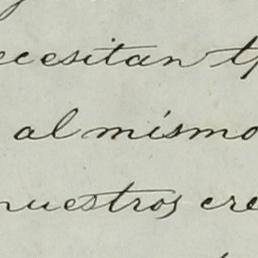 ecesitan
al mismo
nuestros cre